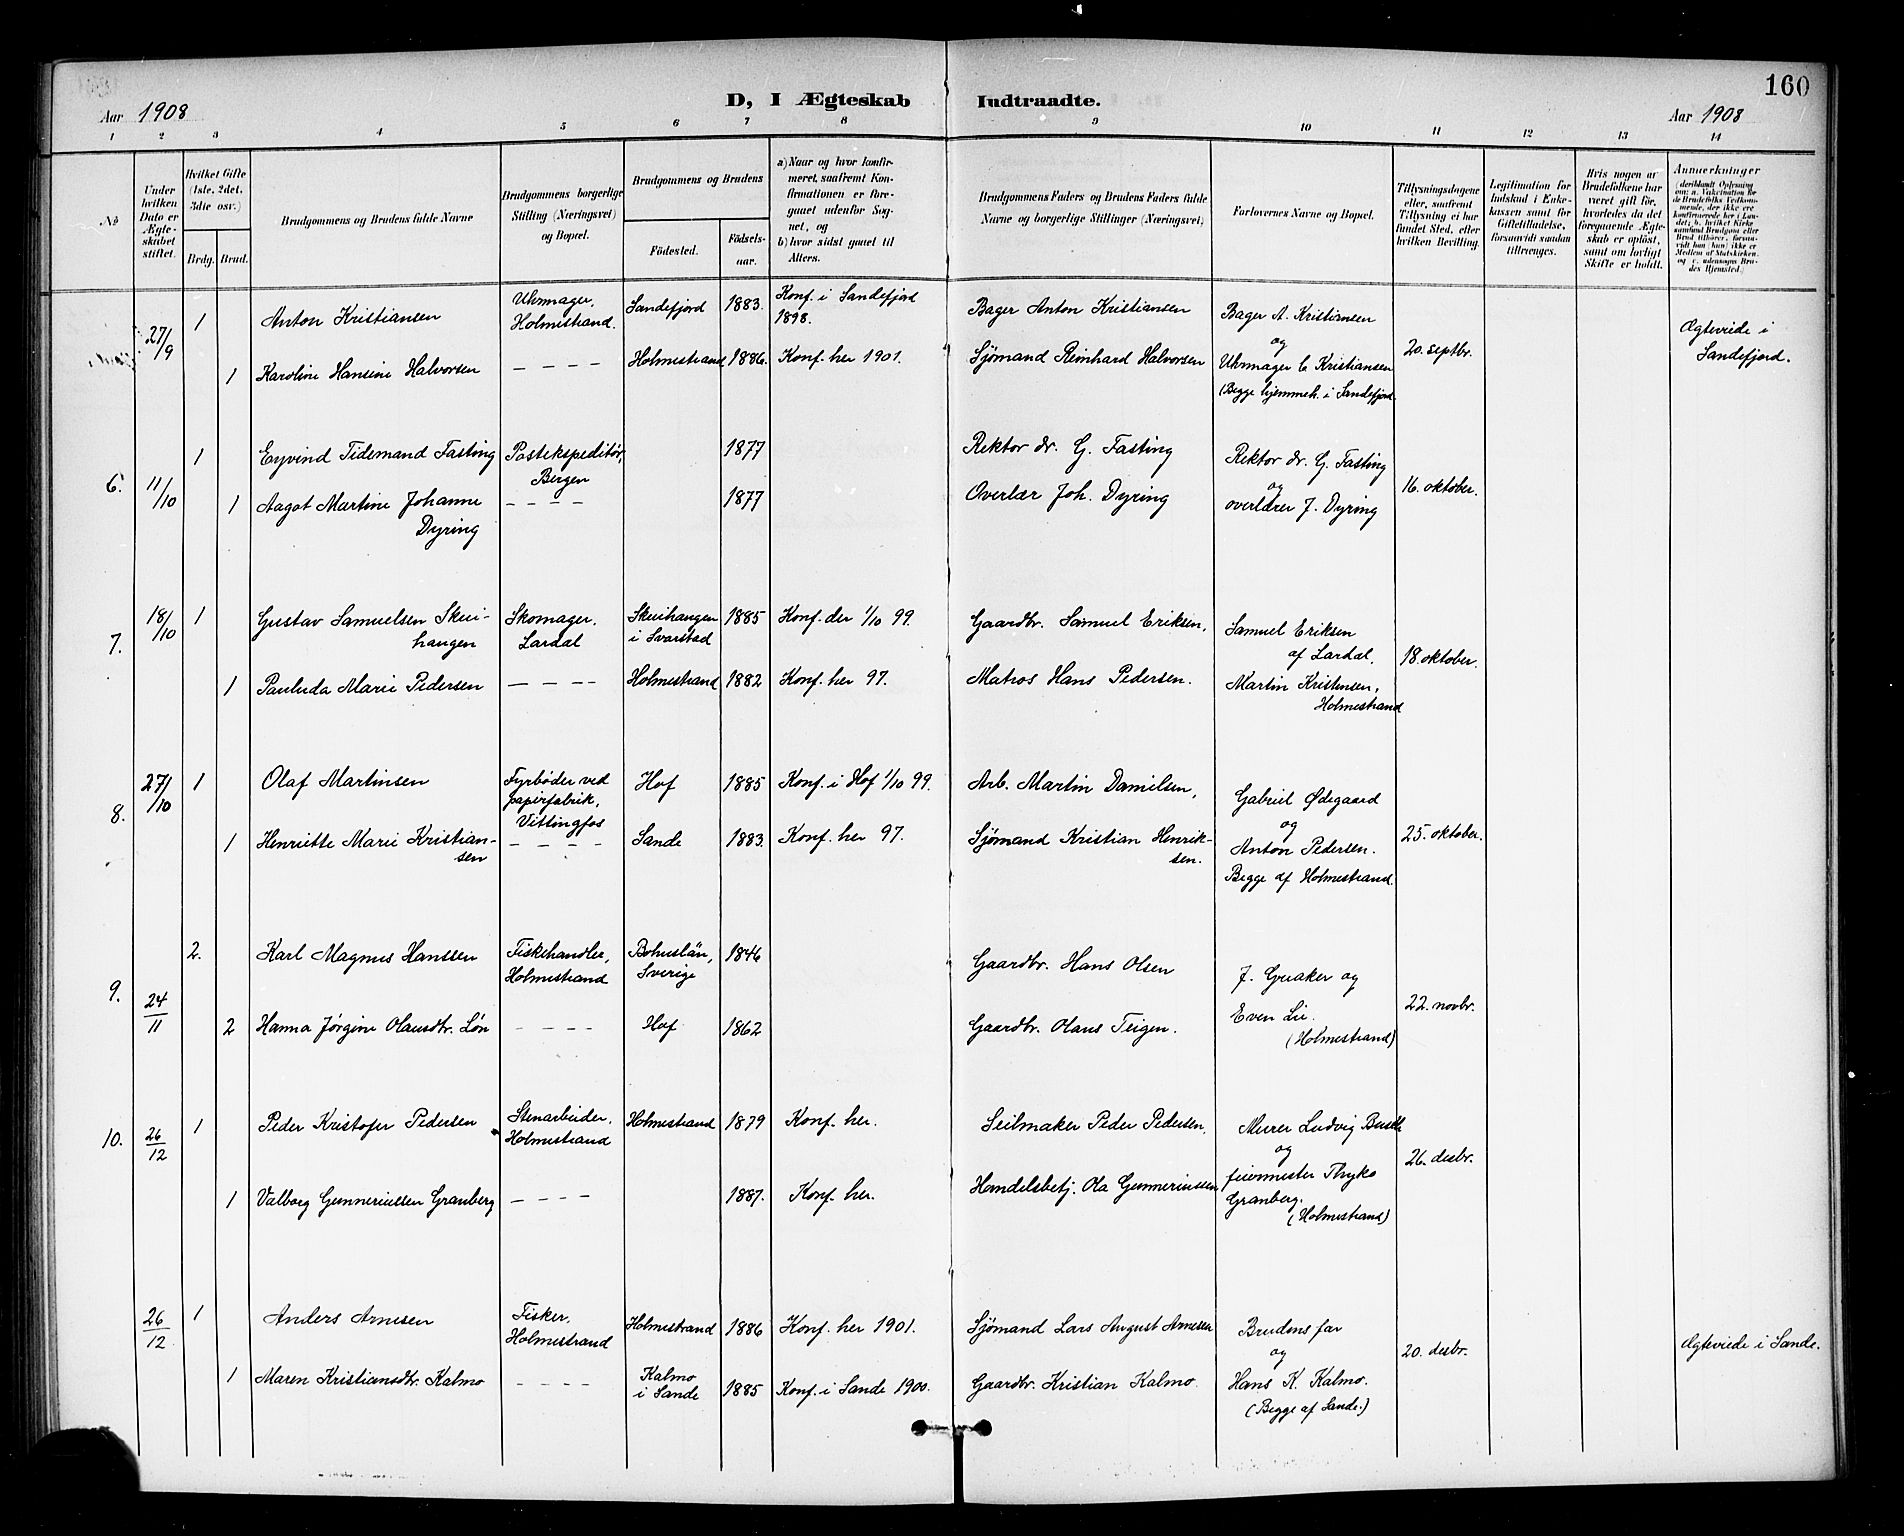 160
Aar 1908
D, I Ægteskab Indtraadte.
Aar 1908
1 2 3 4 5 6 7 8 9 10 11 12 13 14
No
Under hvilken Dato er Ægteskabet stiftet.
Hvilket Gifte (1ste, 2det, 3die osv.)
Brdg. Brud.
Brudgommens og Brudens fulde Navne
Brudgommens borgerlige Stilling (Næringsvei) og Bopæl.
Brudgommens og Brudens
Födested.
Födselsaar.
a) Naar og hvor konfirmeret, saafremt Konfirmationen er foregaaet udenfor Sognet, og
b) hvor sidst gaaet til Alters.
Brudgommens Faders og Brudens Faders fulde Navne og borgerlige Stillinger (Næringsvei)
Forlovernes Navne og Bopæl.
Tillysningsdagene eller, saafremt Tillysning ei har fundet Sted, efter hvilken Bevilling.
Legitimation for Indskud i Enkekassen samt for Giftetilladelse, forsaavidt saadan tiltrænges.
Hvis nogen af Brudefolkene har været gift för, hvorledes da det foregaaende Ægteskab er oplöst, samt om lovligt Skifte er holdt.
Anmærkninger
27/9 1 Anton Kristiansen Uhrmager, Holmestrand. Sandefjord 1883. Konf. i Sandefjord 1898. Bager Anton Kristiansen Bager A. Kristiansen
og
20. septbr. Ægteviede i Sandefjord.
1 Karoline Hansine Halvorsen - - - - Holmestrand 1886. Konf. her 1901. Sjømand Reinhard Halvorsen Uhrmager C Kristiansen
(Begge hjemmeh. i Sandefjord.
6. 11/10 1 Eyvind Tidemand Fasting Postekspeditör, Bergen 1877 Rektor dr. G. Fasting Rektor dr. G. Fasting
og
16. oktober.
1 Aagot Martine Johanne Dyring - - - - 1877 Overlær Joh. Dyring overlærer J. Dyring
7. 18/10 1 Gustav Samuelsen Skuihangen Skomager. Lardal Skuihangen i Svarstad 1885 Konf. der 1/10 99. Gaardbr. Samuel Eriksen, Samuel Eriksen
af Lardal.
18. oktober.
1 Pauluda Marie Pedersen - - - - Holmestrand 1882 Konf. her 97. Matros Hans Pedersen. Martin Kristensen,
Holmestrand
8. 27/10 1 Olaf Martinsen Fyrbøder ved papirfabrik, Vittingfos Hof 1885 Konf. i Hof 1/10 99. Arb. Martin Danielsen, Gabriel Ødegaard
og
25. oktober.
1 Henriette Marie Kristiansen - - - - Sande 1883. Konf. her 97. Sjømand Kristian Henriksen. Anton Pedersen.
Begge af Holmestrand.
9. 24/11 2. Karl Magnus Hanssen Fiskehandler, Holmestrand Bohuslän, Sverige 1846 Gaardbr. Hans Olsen J. Graaker og
22. novbr.
2 Hanna Jørgine Olausdtr. Løn - - - - Hof 1862 Gaardbr. Olaus Teigen. Even Lie.
(Holmestrand)
10. 26/12 1 Peder Kristofer Pedersen Stenarbeider. Holmestrand Holmestrand 1879 Konf. her. Seilmaker Peder Pedersen. Murer Ludvig
og
26. desbr.
1 Valborg Gunneriussen Granberg - - - - 1887. Konf. her. Handelsbetj. Ola Gunneriussen feiermester Thyko
Granberg.
(Holmestrand)
26/12 1 Anders Arnesen Fisker, Holmestrand Holmestrand 1886 Konf. her 1901. Sjømand Lars August Arnesen Brudens far
og
20. desbr. Ægteviede i Sande.
1 Maren Kristiansdtr. Kalmo - - - - Kalmo i Sande 1885 Konf. i Sande 1900. Gaardbr. Kristian Kalmo. Hans K. Kalmo.
(Begge af Sande.)